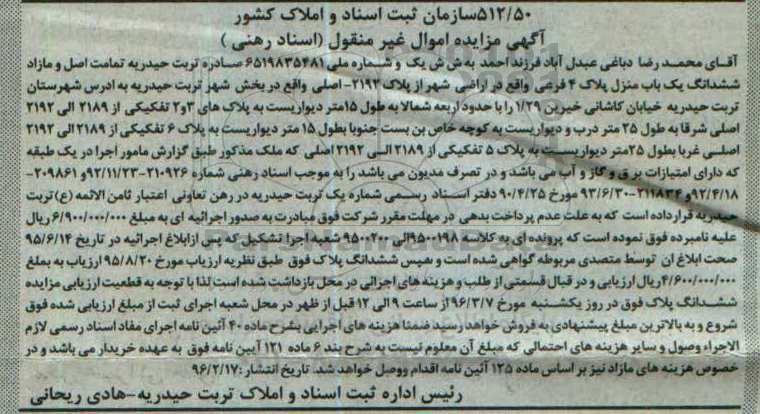 ۵۱۲/۵۰سازمان ثبت اسناد و املاک کشور
آگهی مزایده اموال غیر منقول (اسناد رهنی )
آقـای محمـد رضا دباغی عبدل آباد فرزند احمد به ش ش یک و شـماره ملی ۶۵۱۹۸۳۵۴۸۱ صـادره تربت حیدریه تمامت اصل و مازاد
ششدانگ یک باب منزل پلاک ۴ فرعی واقع در اراضی شهر از پلاک ۲۱۹۲- اصلی واقع در بخش شهر تربت حیدریه به ادرس شهرستان
تربت حیدریه خیابان کاشانی خیرین ۱/۲۹ را با حدود اربعه شمالا به طول ۱۵متر دیواریست به پلاک های ۳و۲ تفکیکی از ۲۱۸۹ الی ۲۱۹۲
اصلی شرقا به طول ۲۵ متر درب و دیواریست به کوچه خاص بن بست جنوبا بطول ۱۵ متر دیواریست به پلاک ۶ تفکیکی از ۲۱۸۹ الی ۲۱۹۲
اصلـی غربا بطول ۲۵متر دیواریسـت به پلاک ۵ تفکیکی از ۲۱۸۹ الـی ۲۱۹۲ اصلی که ملک مذکور طبق گزارش مامور اجرا در یک طبقه
که دارای امتیازات بر ق و گاز و آب می باشد و در تصرف مدیون می باشد را به موجب اسناد رهنی شماره ۲۱۰۹۲۶-۹۲/۱۱/۲۳ -۲۰۹۸۶۱
۹۲/۴/۱۸و ۲۱۱۸۳۴-۹۳/۶/۳۰ مورخ ۹۰/۴/۲۵ دفتر اسـناد رسـمی شماره یک تربت حیدریه در رهن تعاونی اعتبار ثامن الائمه (ع)تربت
حیدریه قرار داده است که به علت عدم پرداخت بدهی در مهلت مقرر شرکت فوق مبادرت به صدور اجرائیه ای به مبلغ ۶/۹۰۰/۰۰۰/۰۰۰ ریال
علیه نامبرده فوق نموده است که پرونده ای به کلاسه ۹۵۰۰۱۹۸الی ۹۵۰۰۲۰۰ شعبه اجرا تشکیل که پس ازابلاغ اجرائیه در تاریخ ۹۵/۶/۱۴
صحت ابلاغ ان توسط متصدی مربوطه گواهی شده است و سپس ششدانگ پلاک فوق طبق نظریه ارزیاب مورخ ۹۵/۸/۲۰ ارزیاب به بملغ
۴/۶۰۰/۰۰۰/۰۰۰ریال ارزیابی و در قبال قسمتی از طلب و هزینه های اجرائی در محل بازداشت شده است لذا با توجه به قطعیت ارزیابی مزایده
ششـدانگ پلاک فوق در روز یکشـنبه مورخ ۹۶/۳/۷از ساعت ۹ الی ۱۲ قبل از ظهر در محل شعبه اجرای ثبت از مبلغ ارزیابی شده فوق
شروع و به بالاترین مبلغ پیشنهادی به فروش خواهد رسید ضمنا هزینه های اجرایی بشرح ماده ۴۰ آئین نامه اجرای مفاد اسناد رسمی لازم
الاجراء وصول و سایر هزینه های احتمالی که مبلغ آن معلوم نیست به شرح بند ۶ ماده ۱۲۱ آیین نامه فوق به عهده خریدار می باشد و در
خصوص هزینه های مازاد نیز بر اساس ماده ۱۲۵ آئین نامه اقدام ووصل خواهد شد. تاریخ انتشار :۹۶/۲/۱۷
رئیس اداره ثبت اسناد و املاک تربت حیدریه-هادی ریحانی